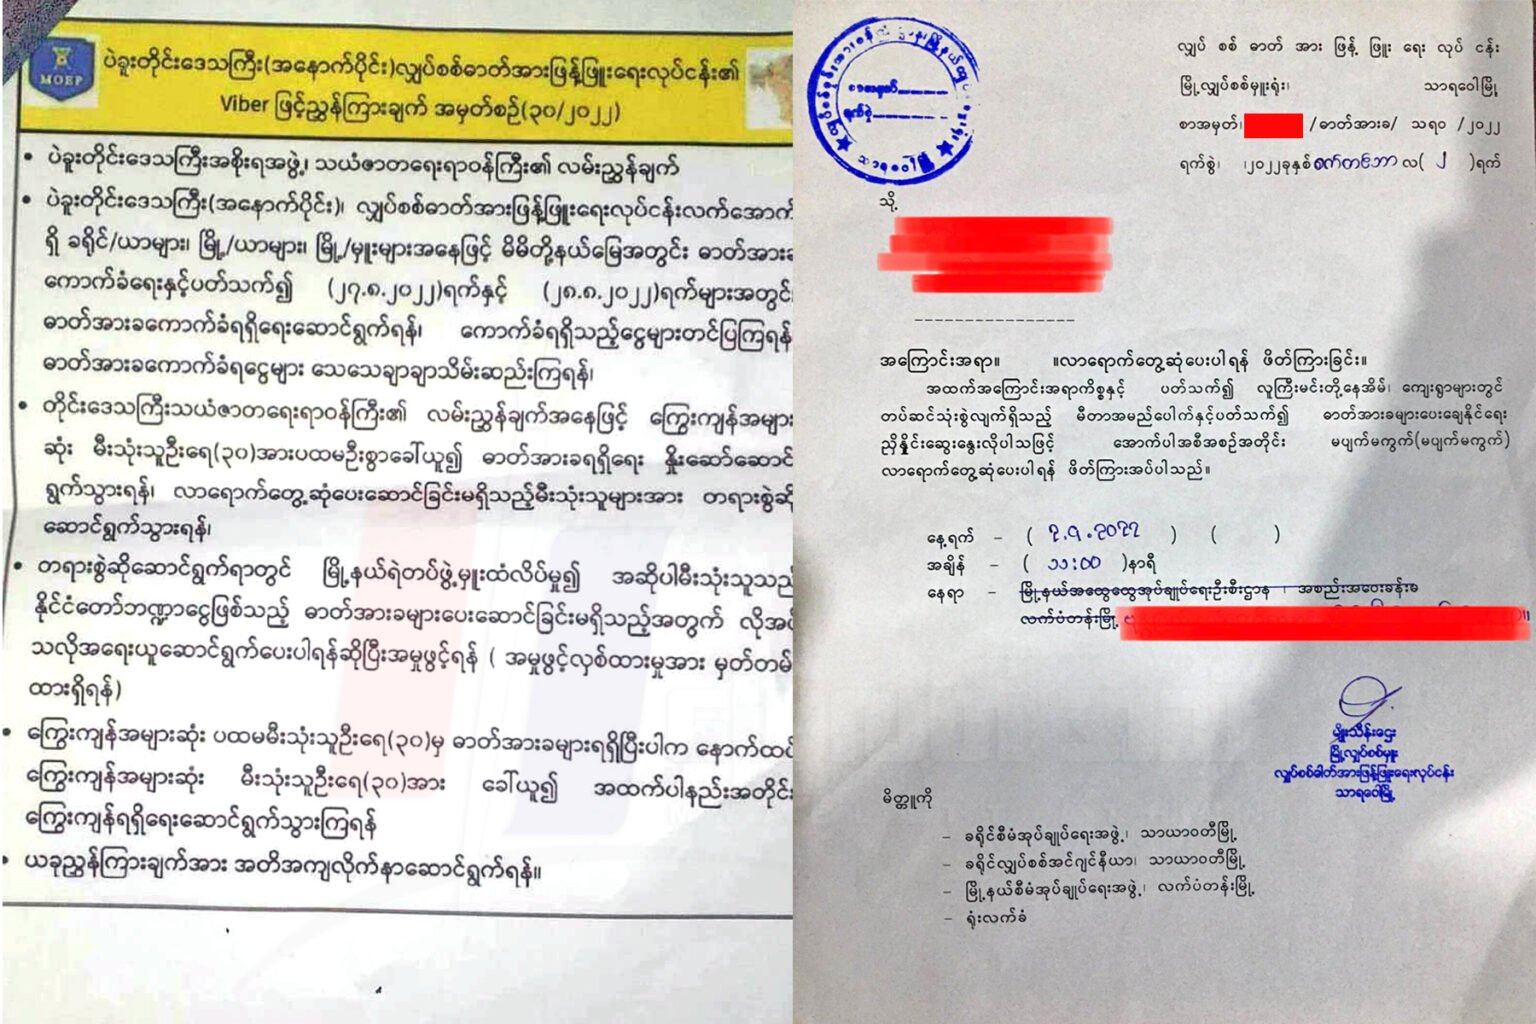 MOEP
ပဲခူးတိုင်းဒေသကြီး(အနောက်ပိုင်း)လျှပ်စစ်ဓာတ်အားဖြန့်ဖြူးရေးလုပ်ငန်း၏
Viber ဖြင့်ညွှန်ကြားချက် အမှတ်စဉ်(၃၀/၂၀၂၂)
• ပဲခူးတိုင်းဒေသကြီးအစိုးရအဖွဲ့၊ သယံဇာတရေးရာဝန်ကြီး၏ လမ်းညွှန်ချက်
• ပဲခူးတိုင်းဒေသကြီး(အနောက်ပိုင်း)၊ လျှပ်စစ်ဓာတ်အားဖြန့်ဖြူးရေးလုပ်ငန်းလက်အောက်
ရှိ ခရိုင်/ယာများ၊ မြို့/ယာများ၊ မြို့/မှူးများအနေဖြင့် မိမိတို့နယ်မြေအတွင်း ဓာတ်အားခ
ကောက်ခံရေးနှင့်ပတ်သက်၍ (၂၇.၈.၂၀၂၂)ရက်နှင့် (၂၈.၈.၂၀၂၂)ရက်များအတွင်း
ဓာတ်အားခကောက်ခံရရှိရေးဆောင်ရွက်ရန်၊ ကောက်ခံရရှိသည့်ငွေများတင်ပြကြရန်
ဓာတ်အားခကောက်ခံရငွေများ သေသေချာချာသိမ်းဆည်းကြရန်၊
• တိုင်းဒေသကြီးသယံဇာတရေးရာဝန်ကြီး၏ လမ်းညွှန်ချက်အနေဖြင့် ကြွေးကျန်အများ
ဆုံး မီးသုံးသူဦးရေ(၃၀)အားပထမဦးစွာခေါ်ယူ၍ ဓာတ်အားခရရှိရေး နှိုးဆော်ဆောင်
ရွက်သွားရန်၊ လာရောက်တွေ့ဆုံပေးဆောင်ခြင်းမရှိသည့်မီးသုံးသူများအား တရားစွဲဆို
ဆောင်ရွက်သွားရန်၊
• တရားစွဲဆိုဆောင်ရွက်ရာတွင် မြို့နယ်ရဲတပ်ဖွဲ့မှူးထံလိပ်မူ၍ အဆိုပါမီးသုံးသူသည်
နိုင်ငံတော်ဘဏ္ဍာငွေဖြစ်သည့် ဓာတ်အားခများပေးဆောင်ခြင်းမရှိသည့်အတွက် လိုအပ်
သလိုအရေးယူဆောင်ရွက်ပေးပါရန်ဆိုပြီးအမှုဖွင့်ရန် ( အမှုဖွင့်လှစ်ထားမှုအား မှတ်တမ်း
ထားရှိရန်)
• ကြွေးကျန်အများဆုံး ပထမမီးသုံးသူဦးရေ(၃၀)မှ ဓာတ်အားခများရရှိပြီးပါက နောက်ထပ်
ကြွေးကျန်အများဆုံး မီးသုံးသူဦးရေ(၃၀)အား ခေါ်ယူ၍ အထက်ပါနည်းအတိုင်း
ကြွေးကျန်ရရှိရေးဆောင်ရွက်သွားကြရန်
• ယခုညွှန်ကြားချက်အား အတိအကျလိုက်နာဆောင်ရွက်ရန်။
လျှပ် စစ် ဓာတ် အား ဖြန့် ဖြူး ရေး လုပ် ငန်း
မြို့လျှပ်စစ်မှူးရုံး၊ သာရဝေါမြို့
စာအမှတ်၊ /ဓာတ်အားခ/ သရဝ /၂၀၂၂
ရက်စွဲ၊ ၊၂၀၂၂ခုနှစ်စက်တင်ဘာ လ( ၂ )ရက်
သို့
----------------
အကြောင်းအရာ။ ။လာရောက်တွေ့ဆုံပေးပါရန် ဖိတ်ကြားခြင်း။
အထက်အကြောင်းအရာကိစ္စနှင့် ပတ်သက်၍ လူကြီးမင်းတို့နေအိမ်၊ ကျေးရွာများတွင်
တပ်ဆင်သုံးစွဲလျက်ရှိသည့် မီတာအမည်ပေါက်နှင့်ပတ်သက်၍ ဓာတ်အားခများပေးချေနိုင်ရေး
ညှိနှိုင်းဆွေးနွေးလိုပါသဖြင့် အောက်ပါအစီအစဉ်အတိုင်း မပျက်မကွက်(မပျက်မကွက်)
လာရောက်တွေ့ဆုံပေးပါရန် ဖိတ်ကြားအပ်ပါသည်။
နေ့ရက် – ( ၇.၉.၂၀၂၂ ) ( )
အချိန် – ( ၁၁:၀၀ )နာရီ
နေရာ – မြို့နယ်အထွေထွေအုပ်ချုပ်ရေးဦးစီးဌာန ၊ အစည်းအဝေးခန်းမ
လက်ပံတန်းမြို့
မျိုးသိန်းဌေး
မြို့လျှပ်စစ်မှူး
လျှပ်စစ်ဓါတ်အားဖြန့်ဖြူးရေးလုပ်ငန်း
သာရဝေါမြို့
မိတ္တူကို
– ခရိုင်စီမံအုပ်ချုပ်ရေးအဖွဲ့၊ သာယာဝတီမြို့
– ခရိုင်လျှပ်စစ်အင်ဂျင်နီယာ၊ သာယာဝတီမြို့
– မြို့နယ်စီမံအုပ်ချုပ်ရေးအဖွဲ့၊ လက်ပံတန်းမြို့
– ရုံးလက်ခံ